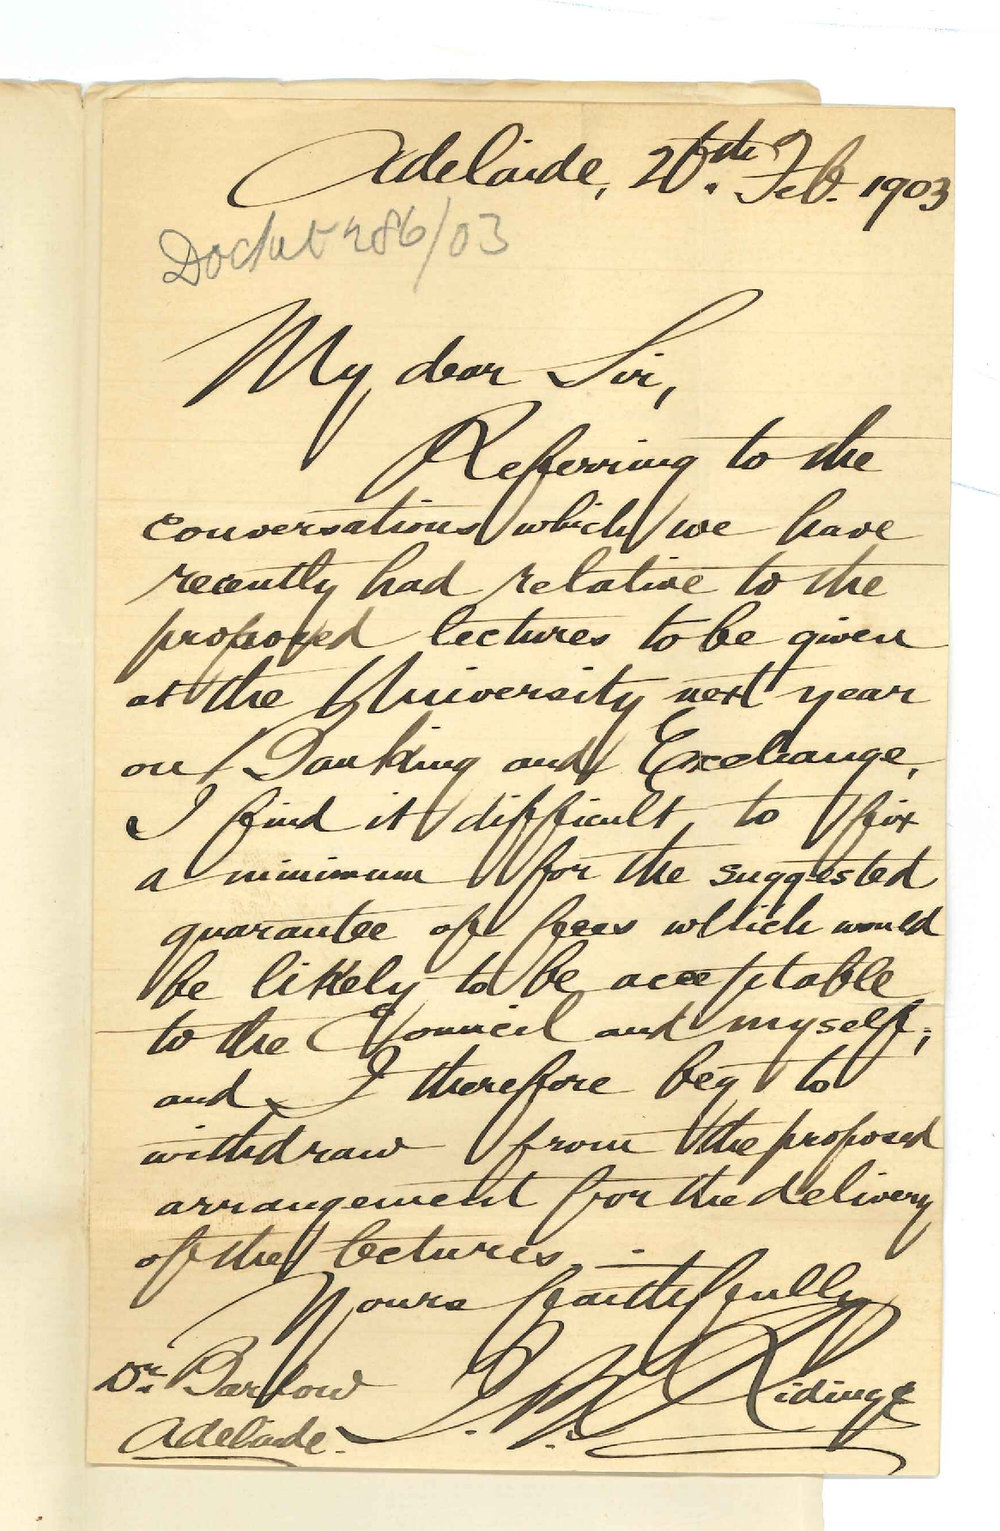 Adelaide, 26th. Feb. 1903
Docket 286/03
My dear Sir,
Referring to the
conversations which we have
recently had relative to the
proposed lectures to be given
at the University next year
on Banking and Exchange,
I find it difficult to fix
a minimum for the suggested
guarantee of fees which would
be likely to be acceptable
to the Council and myself;
and I therefore beg to
withdraw from the proposed
arrangement for the delivery
of the lectures.
Yours faithfully
Dr. Barlow
Adelaide.